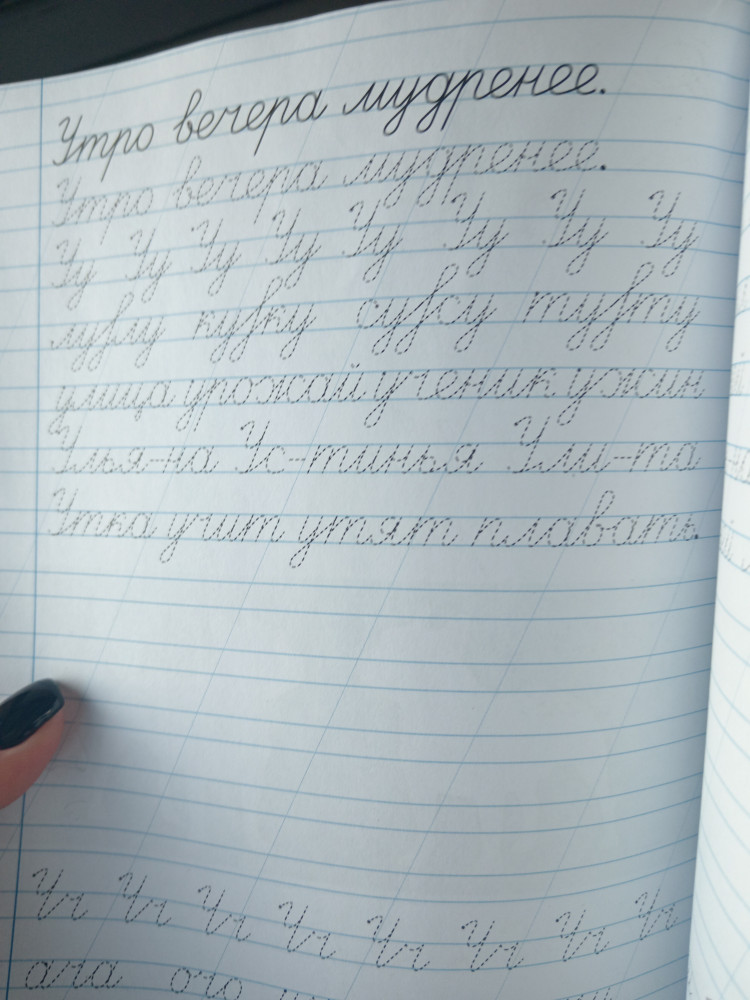 Утро вечера мудренее.
Утро вечера мудренее.
Уу Уу Уу Уу Уу Уу Уу Уу
улица урожай ученик ужин
Улья-на Ус-тинья Ули-та
Утка учит утят плавать.
Чч Чч Чч Чч Чч Чч Чч Чч
ача очо